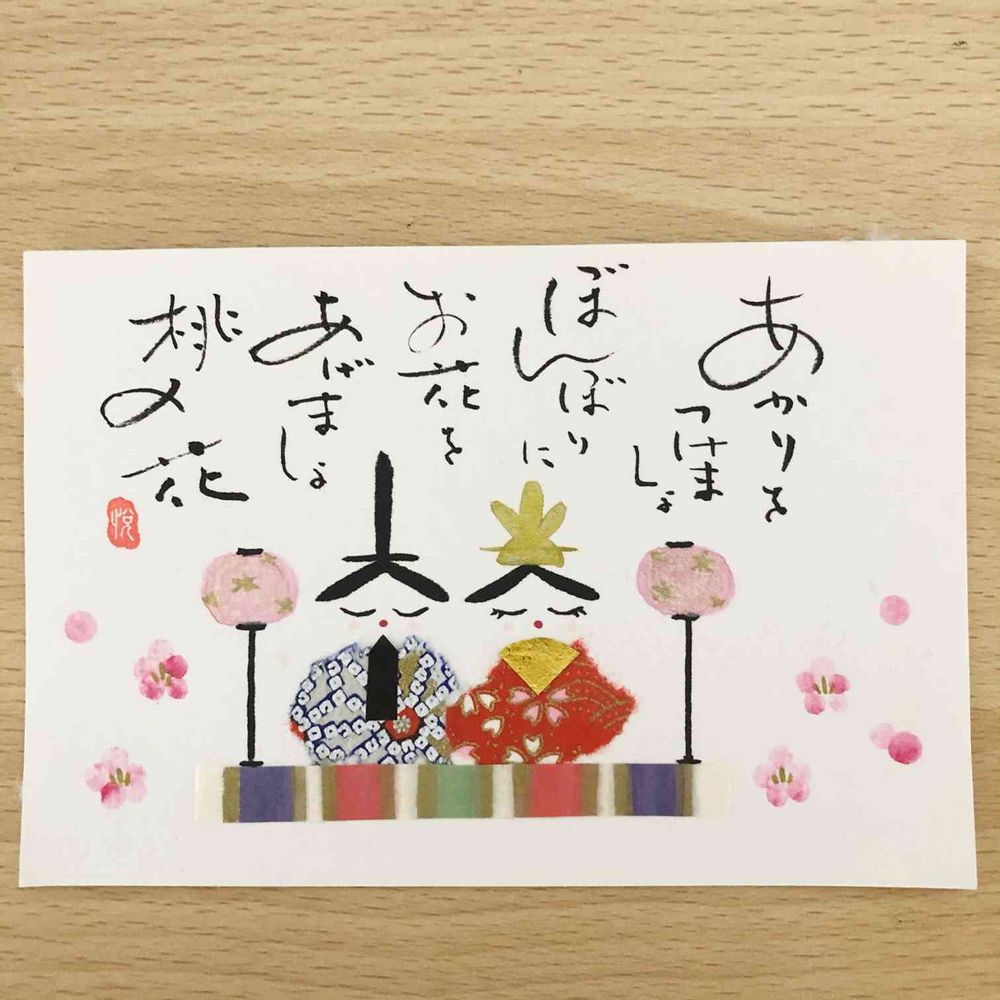 あかりを
つけま
しょ
ぼん
ぼり
に
お花を
あげま
しょ
桃の花
悦